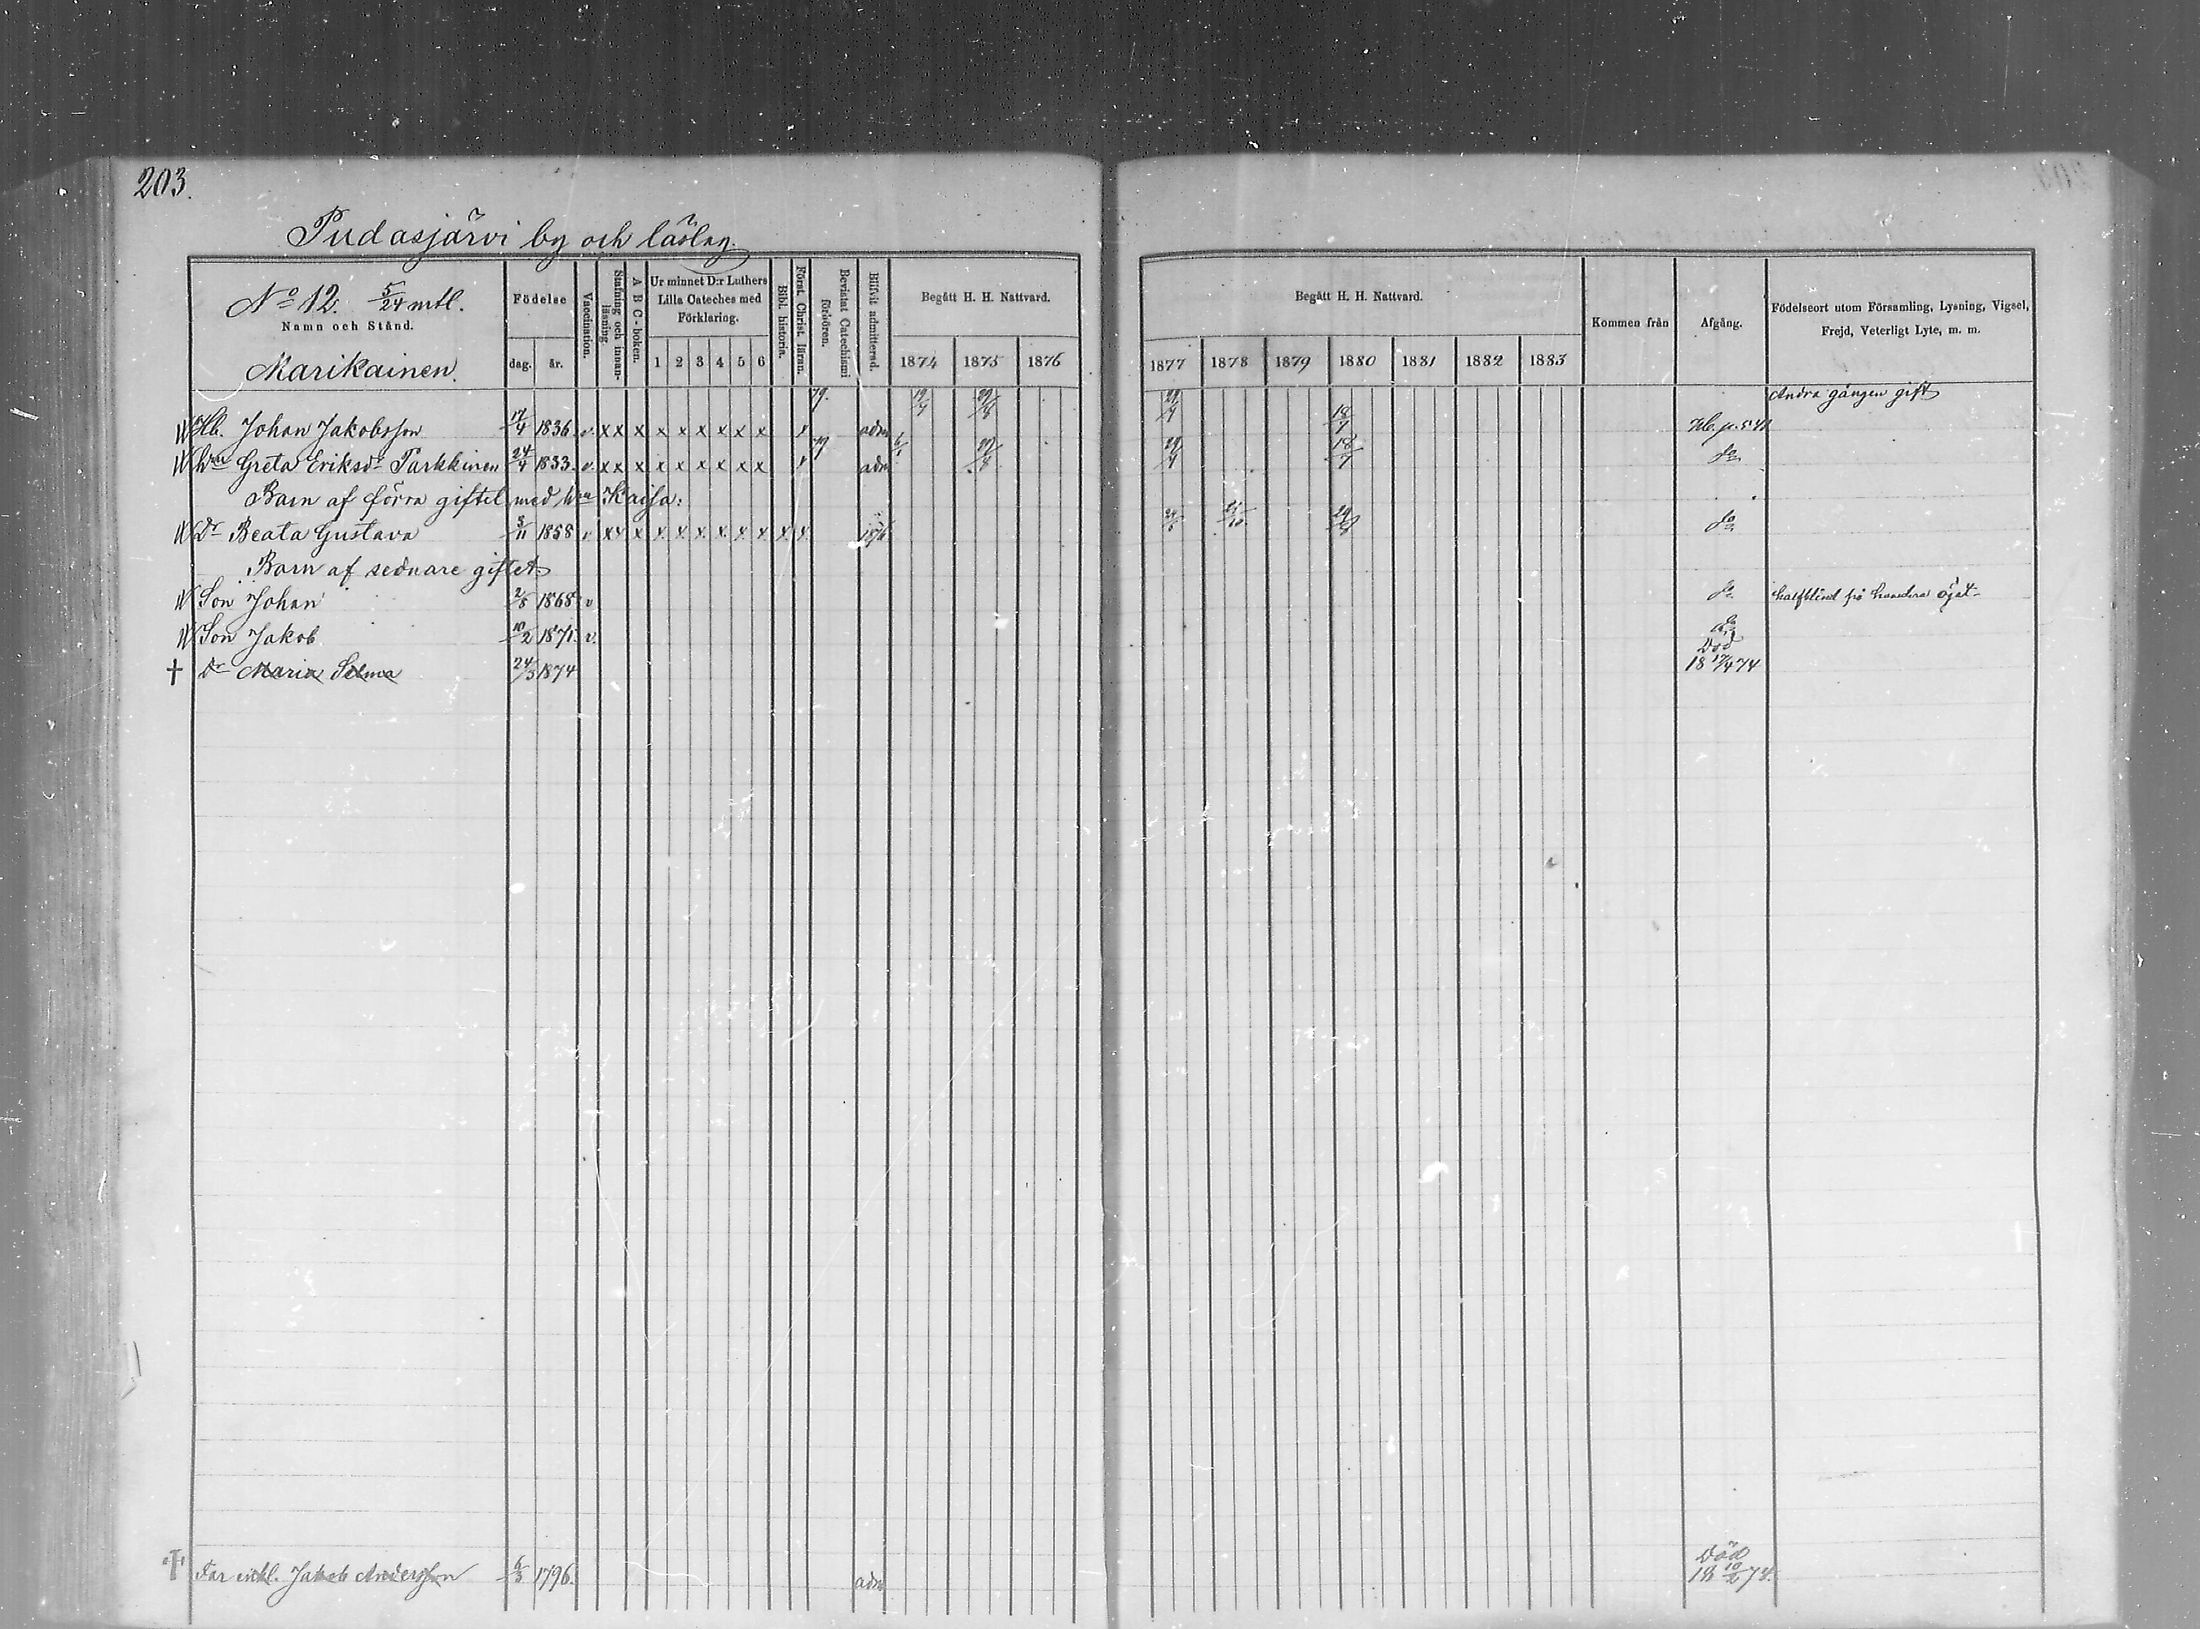 203.
Pudasjärvi by och läslag.
No 12. 5/24 mtl.
Namn och Stånd.
Marikainen.
Födelse
dag. år.
Vaccination.
Stafning och innanläsning.
A B C-boken.
Ur minnet D:r Luthers Lilla Cateches med Förklaring.
1 2 3 4 5 6
Bibl. historia.
Först. Christ. läran.
Bevistat Catechismi förhören.
Blifvit admitterad.
Begått H. H. Nattvard.
1874 1875 1876
Begått H. H. Nattvard.
1877 1878 1879 1880 1881 1882 1883
Kommen från
Afgång.
Födelseort utom Församling, Lysning, Vigsel, Frejd, Veterligt Lyte, m. m.
Andra gången gift
Hb. Johan Jakobsson 17/4 1836. v x x x x x x x x x x adm 18/7
hu Greta Eriksdr Parkkinen 24/4 1833. v x x x x x x x x x x adm 18/7 do
Barn af förra giftet med hu Kaisa:
Dr Beata Gustava 3/11 1858 v x x x x x x x x x x x 1876 do
Barn af sednare giftet
Son Johan 2/5 1868 v do halfblind på högra ögat
Son Jakob 10/2 1871. v. do
† Dr Maria Selma 24/3 1874 Död 18 17/4 74
† Far Jakob Andersson 6/3 1796. adm Död 18 10/2 74.